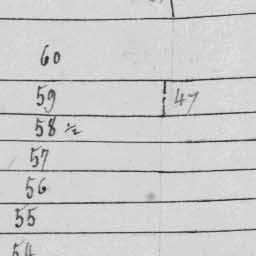 60
59 47
58 ½
57
56
55
54